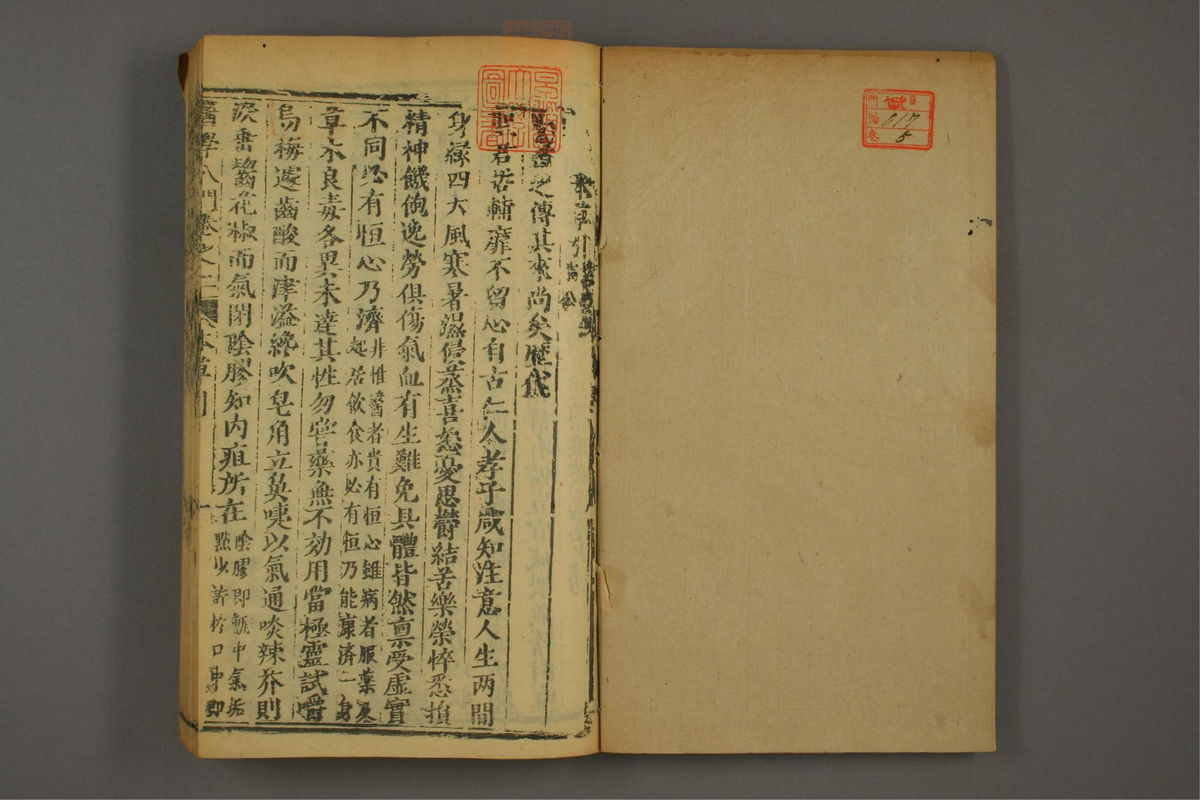 本草引
醫書之傳其來尚矣歷代
聖君若輔靡不留心自古仁人孝子咸知注意人生两間
身緣四大風寒暑濕侵蒸喜怒憂思鬱結苦樂榮悴悉損
精神饑飽逸勞俱傷氣血有生難免具體皆然禀受虛實
不同必有恒心乃濟
非惟醫者貴有恒心雖病者服藥及
起居飲食亦必有恒乃能康濟一身
草木良毒各異未達其性勿嘗藥無不効用當極靈試嚼
烏梅遽齒酸而津溢纔吹皂角立鼻嚏以氣通啖辣芥則
淚垂齧花椒而氣閉陰膠知內疽所在
陰膠即甑中氣垢
點少許於口即
醫學入門卷之二
本草引
617
5